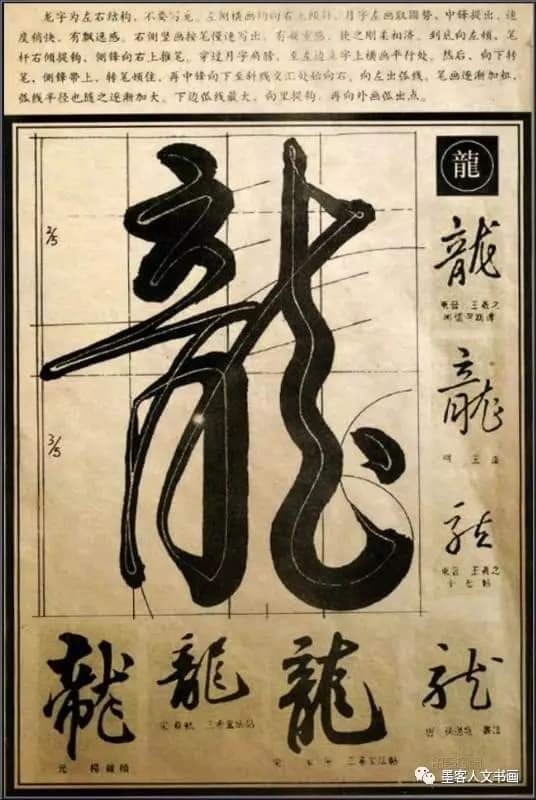 龙字为左右结构，不要写宽。左侧横画均向右上倾斜，月字左画取圆势，中锋提出，速
度稍快，有飘逸感。右侧竖画按笔慢速写出，有凝重感，使之刚柔相济。到底向左顿，笔
杆右倾提钩，侧锋向右上推笔。穿过月字肩膀，至左边立字上横画平行处。然后，向下转
笔，侧锋带上，转笔顿住，再中锋向下至斜线交汇处始向右，向左出弧线，笔画逐渐加粗，
弧线半径也随之逐渐加大。下边弧线最大，向里提钩，再向外画弧出点。
龍
2/5
3/5
龍
龍
東晉 王羲之
龍
明 王
龍
東晉 王羲之
十七帖
龍
元 楊維楨
龍
宋 三希堂法帖
龍
宋 三希堂法帖
龍
唐 孫過庭 書譜
墨客人文书画